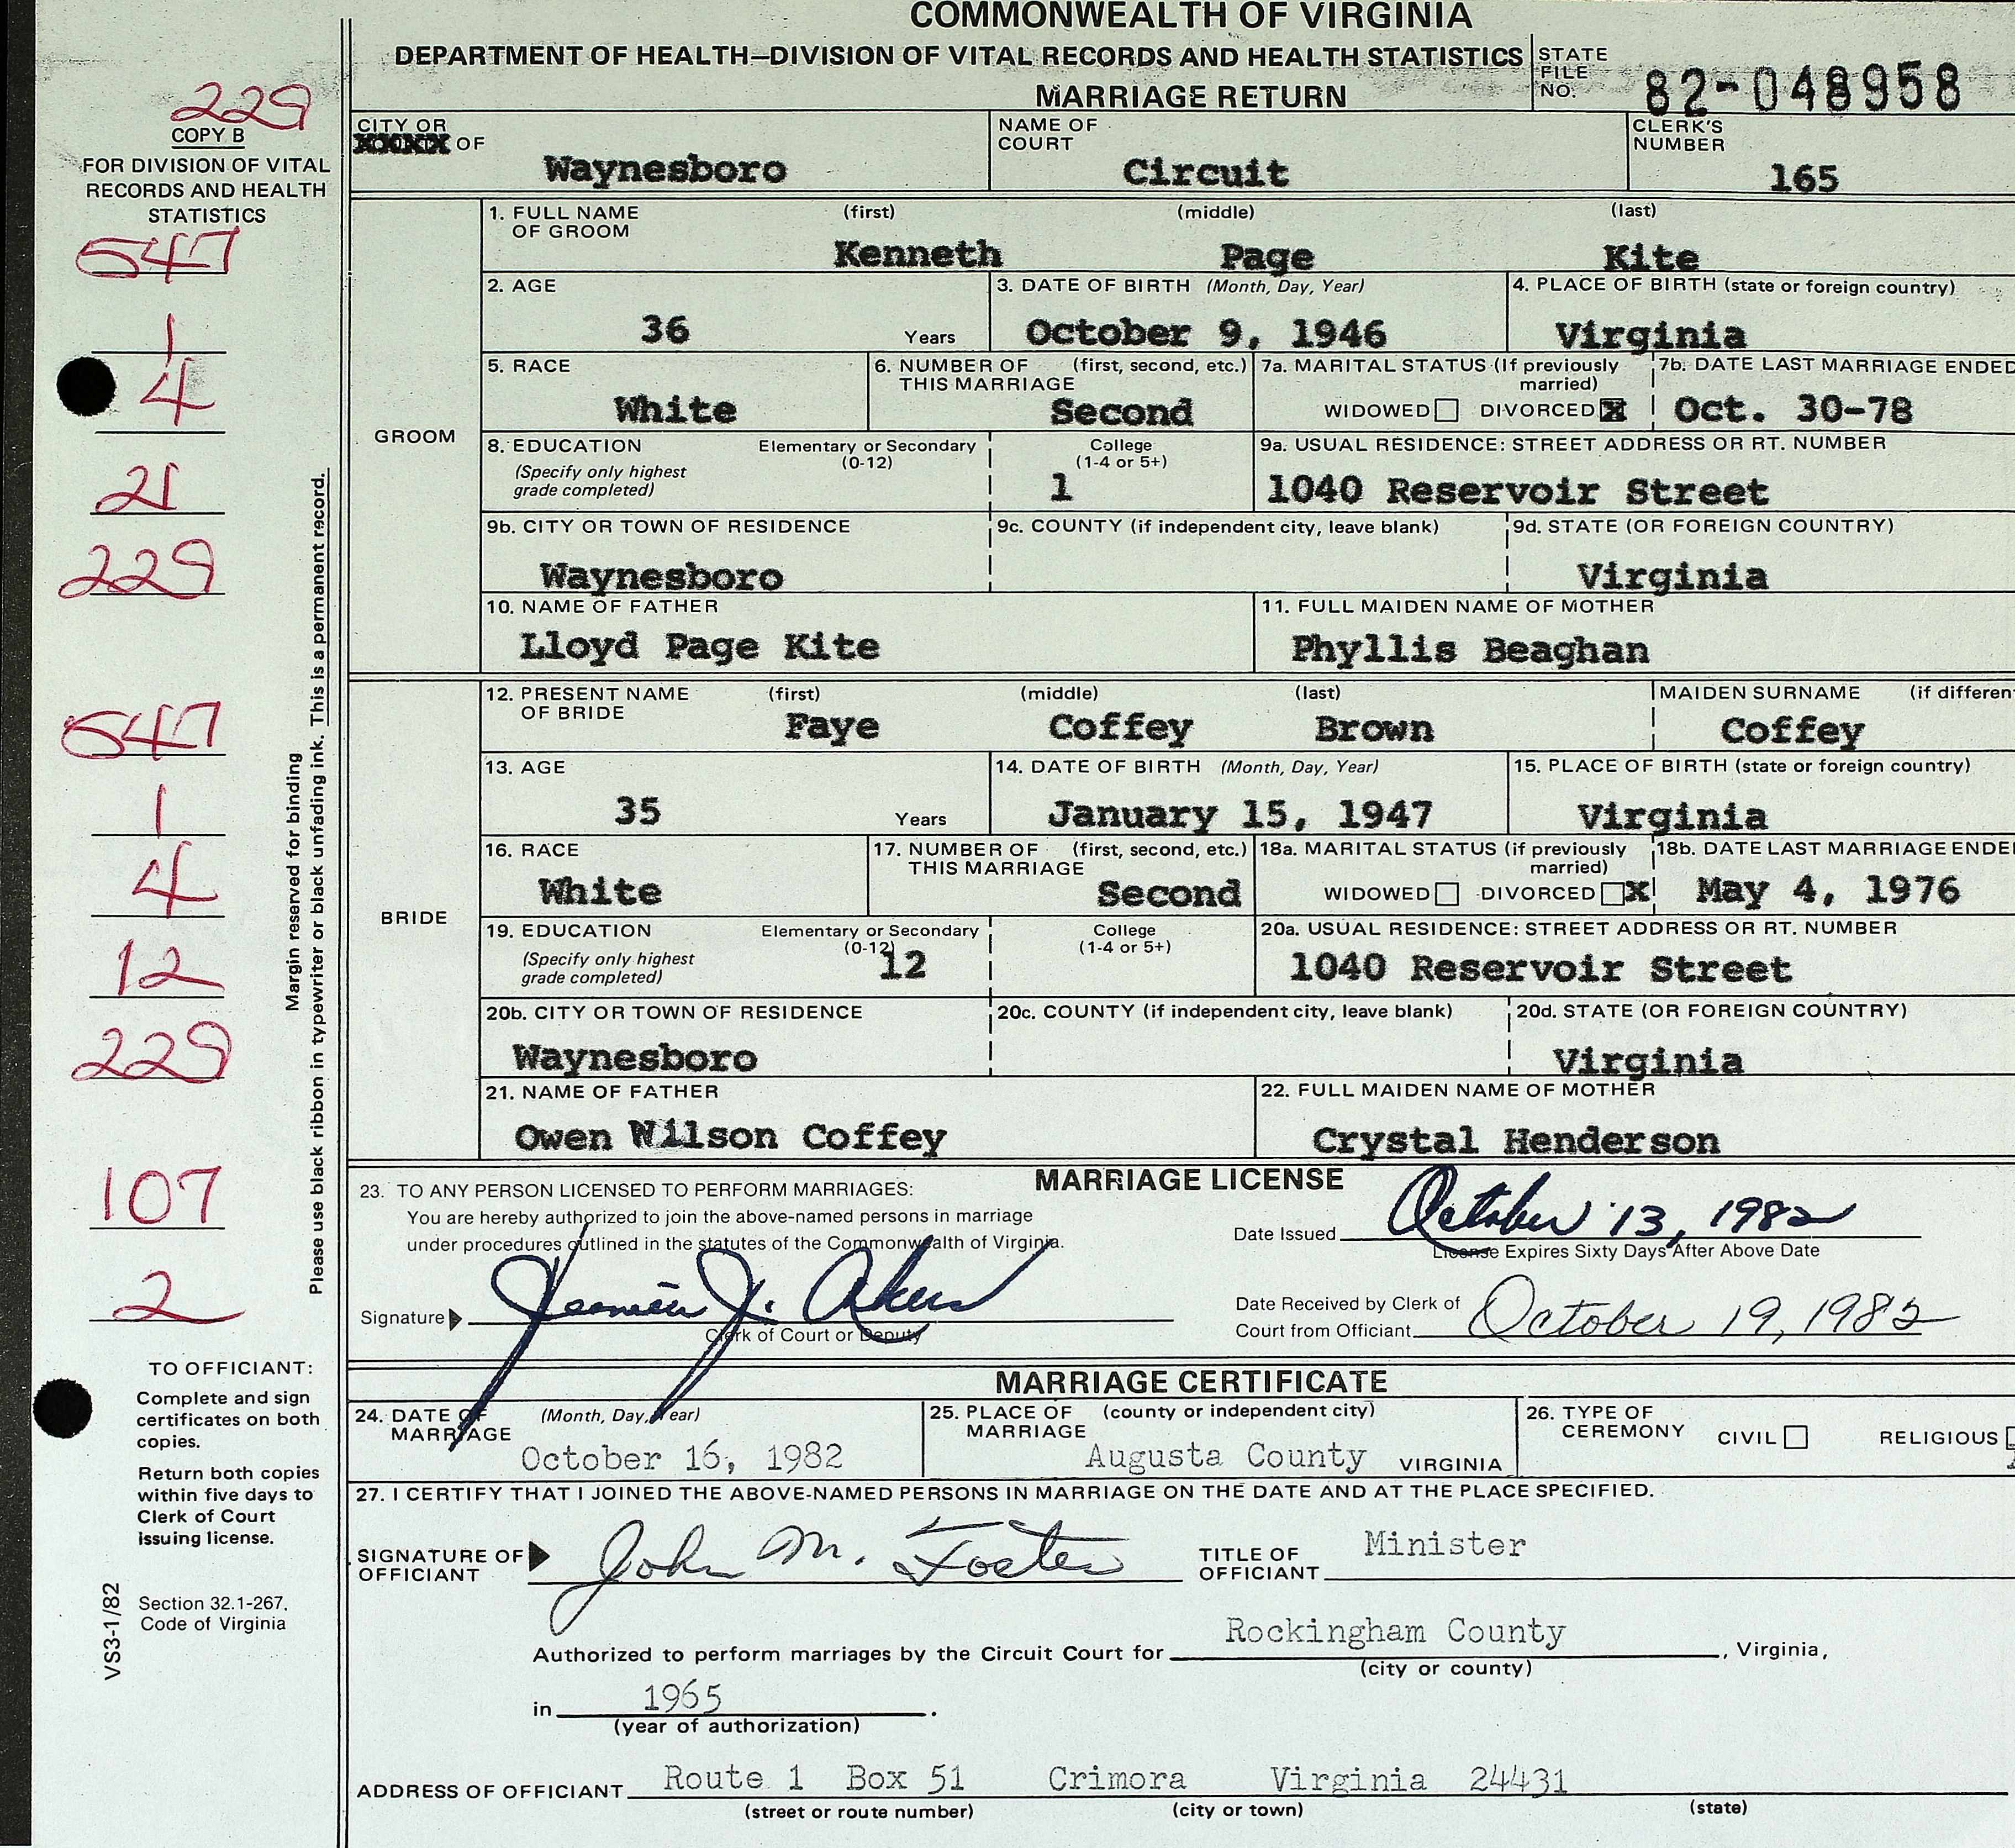 COMMONWEALTH OF VIRGINIA
DEPARTMENT OF HEALTH—DIVISION OF VITAL RECORDS AND HEALTH STATISTICS
MARRIAGE RETURN
STATE FILE NO. 82-048958
229
COPY B
FOR DIVISION OF VITAL
RECORDS AND HEALTH
STATISTICS
547
1
4
21
229
547
1
4
12
229
107
2
Margin reserved for binding
Please use black ribbon in typewriter or black unfading ink. This is a permanent record.
TO OFFICIANT:
Complete and sign
certificates on both
copies.
Return both copies
within five days to
Clerk of Court
issuing license.
Section 32.1-267,
Code of Virginia
VS3-1/82
CITY OR XXXX OF Waynesboro
NAME OF COURT Circuit
CLERK'S NUMBER 165
GROOM
1. FULL NAME OF GROOM (first) (middle) (last)
Kenneth Page Kite
2. AGE 36 Years
3. DATE OF BIRTH (Month, Day, Year) October 9, 1946
4. PLACE OF BIRTH (state or foreign country) Virginia
5. RACE White
6. NUMBER OF THIS MARRIAGE (first, second, etc.) Second
7a. MARITAL STATUS (If previously married) WIDOWED DIVORCED X
7b. DATE LAST MARRIAGE ENDED Oct. 30-78
8. EDUCATION (Specify only highest grade completed) Elementary or Secondary (0-12) College (1-4 or 5+) 1
9a. USUAL RESIDENCE: STREET ADDRESS OR RT. NUMBER 1040 Reservoir Street
9b. CITY OR TOWN OF RESIDENCE Waynesboro
9c. COUNTY (if independent city, leave blank)
9d. STATE (OR FOREIGN COUNTRY) Virginia
10. NAME OF FATHER Lloyd Page Kite
11. FULL MAIDEN NAME OF MOTHER Phyllis Beaghan
BRIDE
12. PRESENT NAME OF BRIDE (first) (middle) (last) MAIDEN SURNAME (if differen
Faye Coffey Brown Coffey
13. AGE 35 Years
14. DATE OF BIRTH (Month, Day, Year) January 15, 1947
15. PLACE OF BIRTH (state or foreign country) Virginia
16. RACE White
17. NUMBER OF THIS MARRIAGE (first, second, etc.) Second
18a. MARITAL STATUS (if previously married) WIDOWED DIVORCED X
18b. DATE LAST MARRIAGE ENDE May 4, 1976
19. EDUCATION (Specify only highest grade completed) Elementary or Secondary (0-12) 12 College (1-4 or 5+)
20a. USUAL RESIDENCE: STREET ADDRESS OR RT. NUMBER 1040 Reservoir Street
20b. CITY OR TOWN OF RESIDENCE Waynesboro
20c. COUNTY (if independent city, leave blank)
20d. STATE (OR FOREIGN COUNTRY) Virginia
21. NAME OF FATHER Owen Wilson Coffey
22. FULL MAIDEN NAME OF MOTHER Crystal Henderson
MARRIAGE LICENSE
23. TO ANY PERSON LICENSED TO PERFORM MARRIAGES:
You are hereby authorized to join the above-named persons in marriage
under procedures outlined in the statutes of the Commonwealth of Virginia.
Date Issued October 13, 1982
License Expires Sixty Days After Above Date
Signature J. Akers
Clerk of Court or Deputy
Date Received by Clerk of
Court from Officiant October 19, 1982
MARRIAGE CERTIFICATE
24. DATE OF MARRIAGE (Month, Day, Year) October 16, 1982
25. PLACE OF MARRIAGE (county or independent city) Augusta County VIRGINIA
26. TYPE OF CEREMONY CIVIL RELIGIOUS
27. I CERTIFY THAT I JOINED THE ABOVE-NAMED PERSONS IN MARRIAGE ON THE DATE AND AT THE PLACE SPECIFIED.
SIGNATURE OF OFFICIANT John M. Foster
TITLE OF OFFICIANT Minister
Authorized to perform marriages by the Circuit Court for Rockingham County, Virginia,
(city or county)
in 1965.
(year of authorization)
ADDRESS OF OFFICIANT Route 1 Box 51 Crimora Virginia 24431
(street or route number) (city or town) (state)